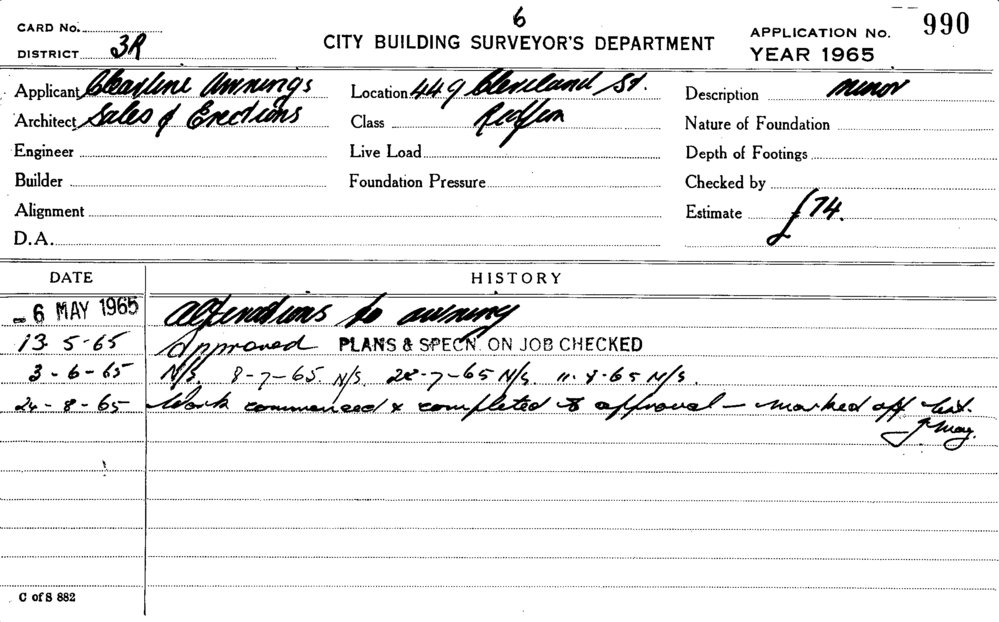 6
CARD No. CITY BUILDING SURVEYOR'S DEPARTMENT APPLICATION No. 990
DISTRICT 3R YEAR 1965
Applicant Clearline Awnings Location 449 Cleveland St. Description minor
Architect Sales & Erections Class Redfern Nature of Foundation
Engineer Live Load Depth of Footings
Builder Foundation Pressure Checked by
Alignment Estimate £74.
D.A.
DATE HISTORY
- 6 MAY 1965 Alterations to awning
13. 5-65 Approved PLANS & SPECN. ON JOB CHECKED
3-6-65 N/S. 8-7-65. N/S. 28-7-65 N/S. 11.8-65 N/S.
24-8-65 Work commenced & completed to approval — marked off list.
J May.
C of S 882